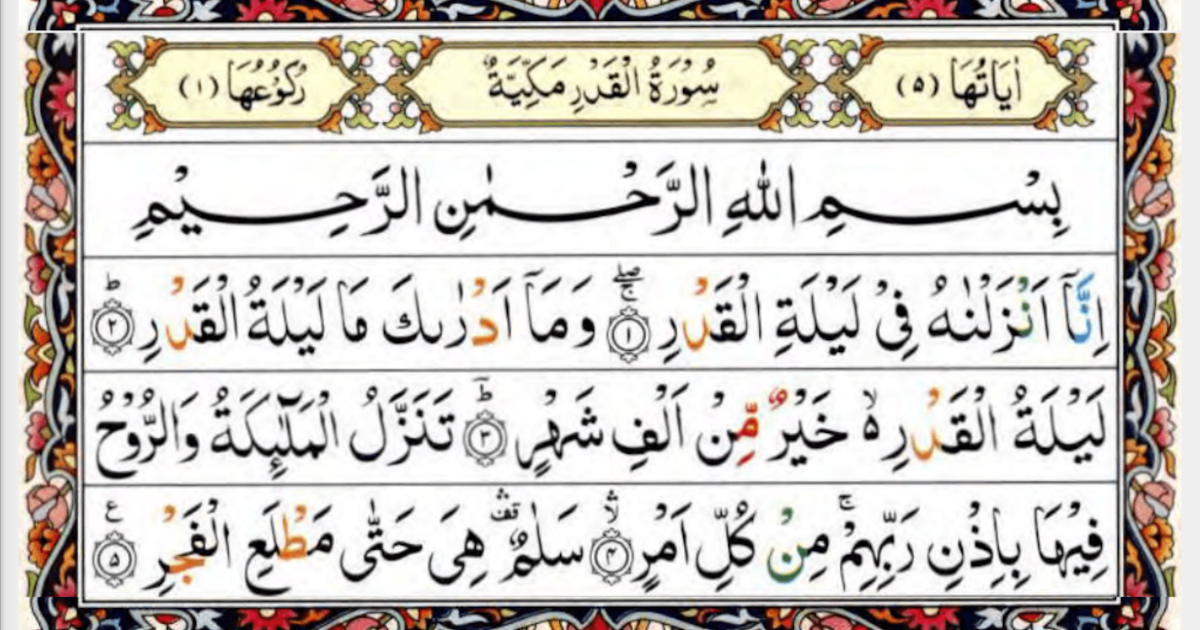 اٰيَاتُهَا (٥) سُوْرَةُ الْقَدْرِ مَكِّيَّةٌ رُكُوْعُهَا (١)
بِسْمِ اللّٰهِ الرَّحْمٰنِ الرَّحِيْمِ
اِنَّاۤ اَنْزَلْنٰهُ فِیْ لَيْلَةِ الْقَدْرِ ۚۖ ﴿١﴾ وَمَاۤ اَدْرٰىكَ مَا لَيْلَةُ الْقَدْرِ ؕ ﴿٢﴾
لَيْلَةُ الْقَدْرِ ۙ۬ خَيْرٌ مِّنْ اَلْفِ شَهْرٍ ؕؔ ﴿٣﴾ تَنَزَّلُ الْمَلٰٓئِكَةُ وَالرُّوْحُ
فِيْهَا بِاِذْنِ رَبِّهِمْ ۚ مِنْ كُلِّ اَمْرٍ ۙۛ ﴿٤﴾ سَلٰمٌ ۛ قف هِیَ حَتّٰى مَطْلَعِ الْفَجْرِ ع ﴿٥﴾